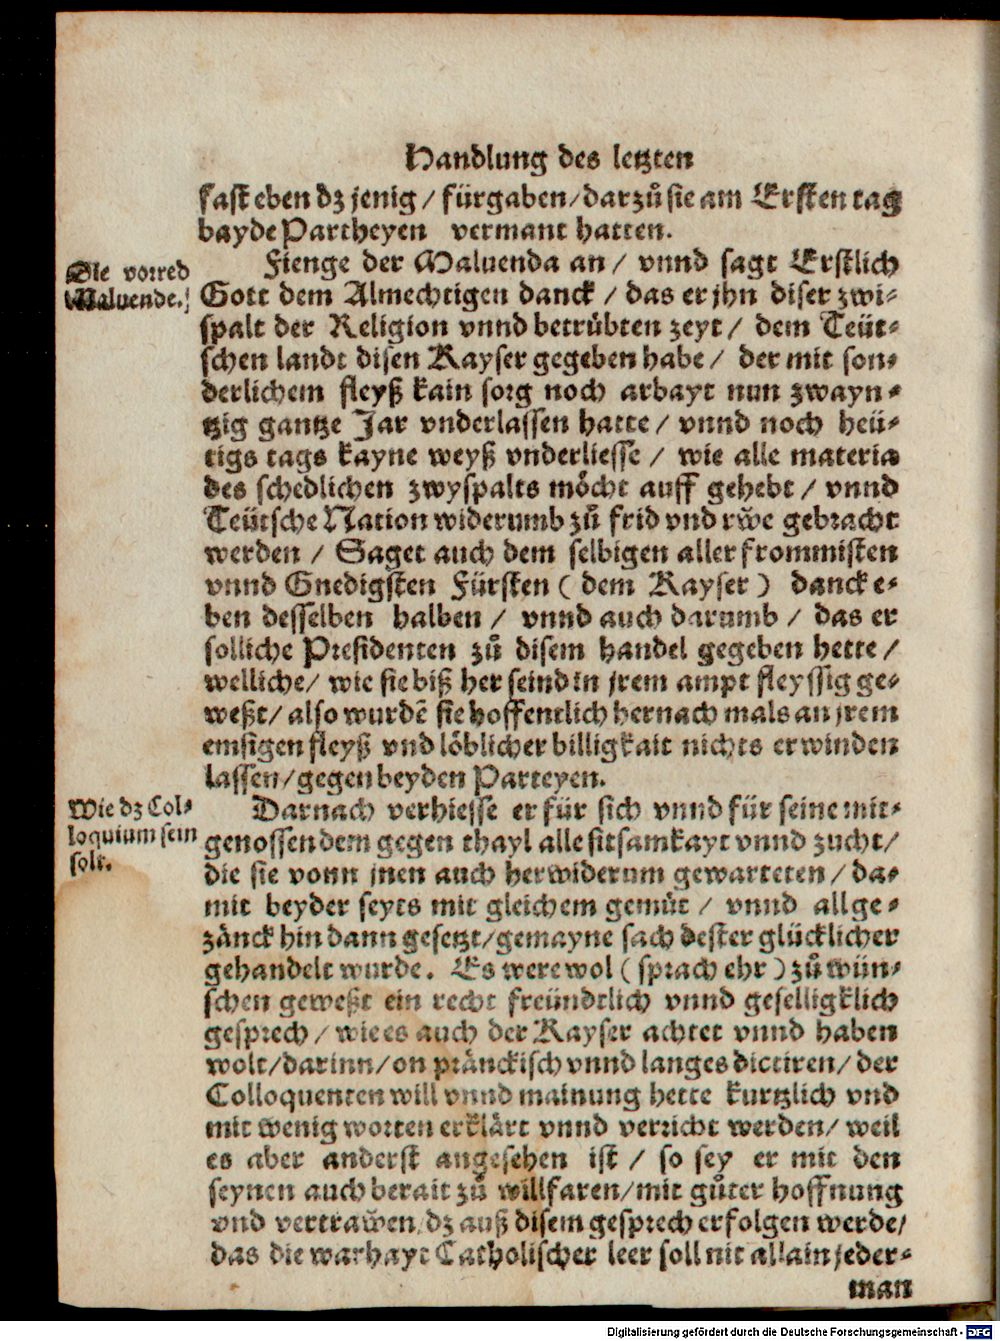 Handlung des letzten
fast eben dz jenig / fürgaben / darzů sie am Ersten tag
bayde Partheyen vermant hatten.
Die vorred
Maluende.
Fienge der Maluenda an / vnnd sagt Erstlich
Gott dem Almechtigen danck / das er jhn diser zwi-
spalt der Religion vnnd betrůbten zeyt / dem Teüt-
schen landt disen Kayser gegeben habe / der mit son-
derlichem fleyß kain sorg noch arbayt nun zwayn-
tzig gantze Jar vnderlassen hatte / vnnd noch heü-
tigs tags kayne weyß vnderliesse / wie alle materia
des schedlichen zwyspalts möcht auff gehebt / vnnd
Teütsche Nation widerumb zů frid vnd růwe gebracht
werden / Saget auch dem selbigen aller frommisten
vnnd Gnedigsten Fürsten ( dem Kayser ) danck e-
ben desselben halben / vnnd auch darumb / das er
solliche Presidenten zů disem handel gegeben hette /
welliche / wie sie biß her seind in jrem ampt fleyssig ge-
weßt / also wurdē sie hoffentlich hernach mals an jrem
emsigen fleyß vnd löblicher billigkait nichts erwinden
lassen / gegen beyden Parteyen.
Wie dz Col-
loquium sein
solt.
Darnach verhiesse er für sich vnnd für seine mit-
genossen dem gegen thayl alle sitsamkayt vnnd zucht /
die sie vonn jnen auch herwiderum gewarteten / da-
mit beyder seyts mit gleichem gemůt / vnnd allge-
zänck hin dann gesetzt / gemayne sach dester glücklicher
gehandelt wurde. Es were wol ( sprach ehr ) zů wün-
schen geweßt ein recht freündtlich vnnd geselligklich
gesprech / wie es auch der Kayser achtet vnnd haben
wolt / darinn / on pränckisch vnnd langes dictiren / der
Colloquenten will vnnd mainung hette kurtzlich vnd
mit wenig worten erklärt vnnd verricht werden / weil
es aber anderst angesehen ist / so sey er mit den
seynen auch berait zů willfaren / mit gůter hoffnung
vnd vertrawen, dz auß disem gesprech erfolgen werde /
das die warhayt Catholischer leer soll nit allain jeder-
man
Digitalisierung gefördert durch die Deutsche Forschungsgemeinschaft - DFG